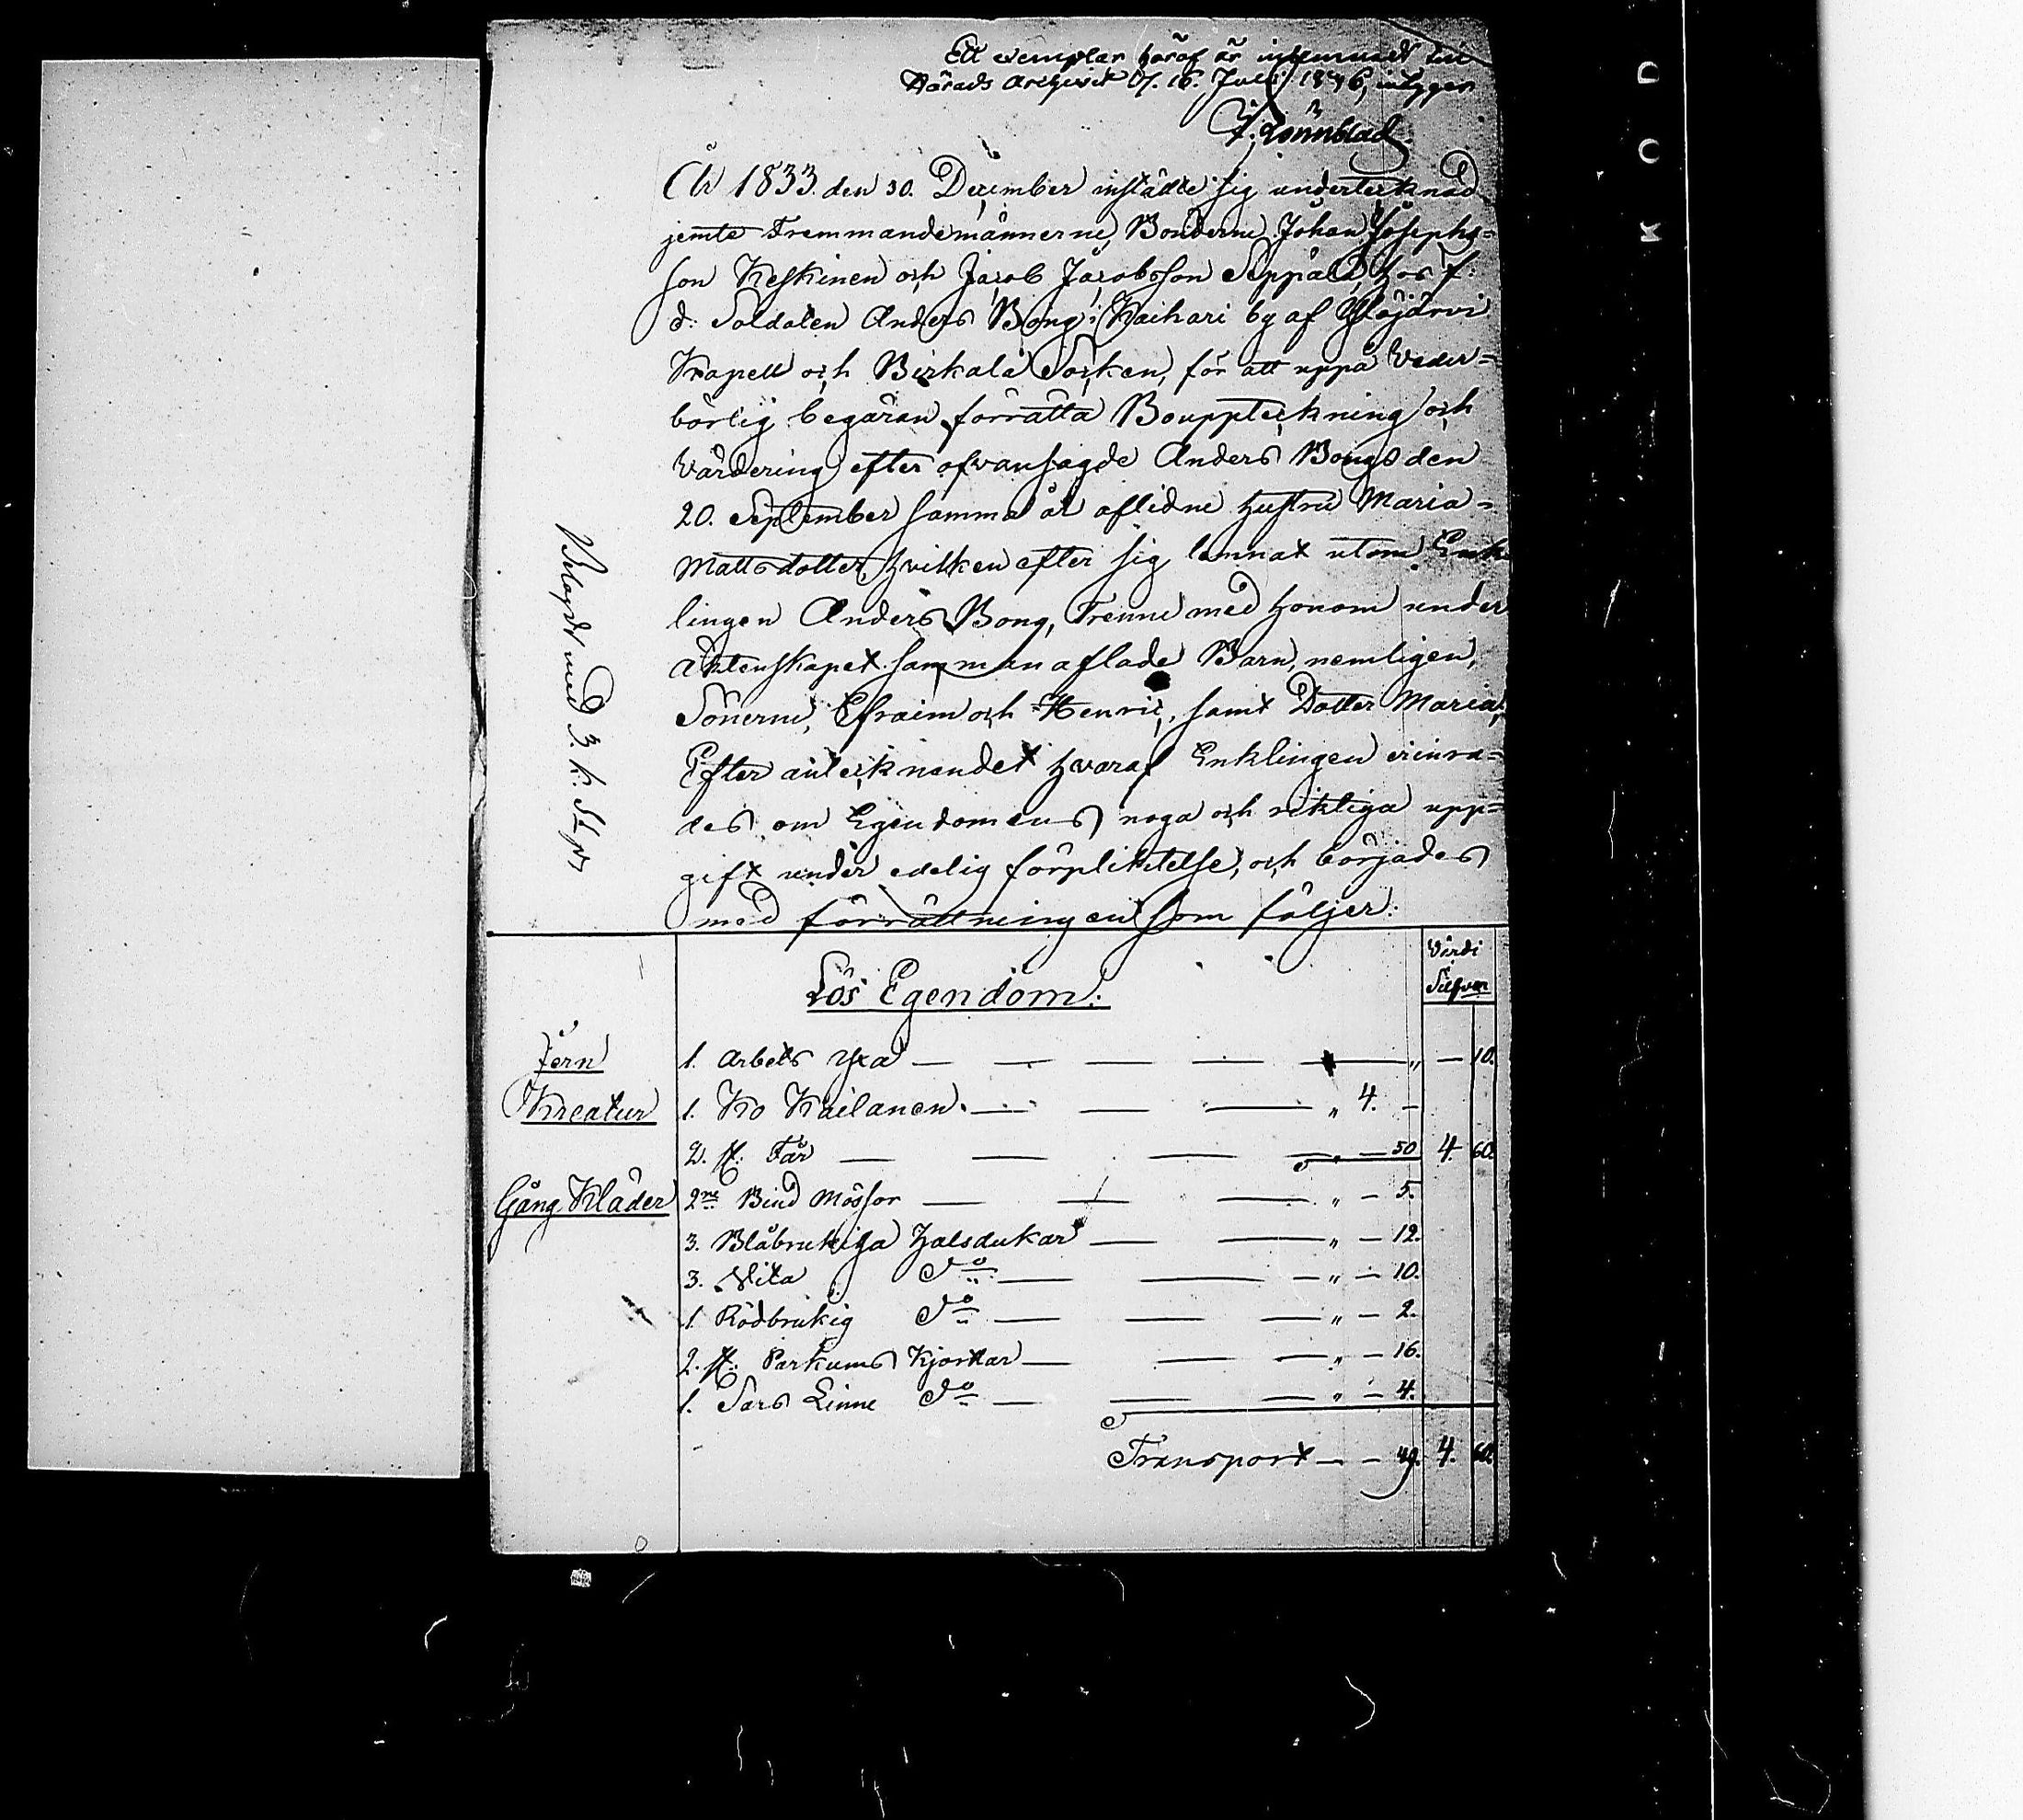 Ett exemplar häraf är inlemnadt till
Härads Archivet d. 16. Juli 1846, intygar
J. Lönnblad
År 1833. den 30. December instälte sig undertecknad
jemte Fremmandemännerne, Bönderne Johan Josephs=
son Keskinen och Jacob Jacobsson Seppälä, hos f:
d: Soldaten Anders Bong i Kaihari by af Ylöjärvi
Kapell och Birkala Socken, för att uppå Veder=
börlig begäran förrätta Bouppteckning och
Värdering efter ofvansagde Anders Bongs den
20. September samma år aflidne hustru Maria
Mattsdotter, hvilken efter sig lemnat utom Enk
lingen Anders Bong, Trenne med honom under
äktenskapet sammanaflade Barn, nemligen,
Sönerne, Efraim och Henric, samt Dotter Maria,
Efter antecknandet hvaraf Enklingen erinra=
des om Egendomens noga och riktiga upp=
gift under edelig förpliktelse, och börjades
med förrättningen som följer:
Värdi
Silfver
Lös Egendom:
Jern 1. Arbets yxa — — — — — " — 10.
Kreatur 1. Ko Kailanen. — — — " 4. —
2. st. Får — — — — " — 50 4. 60.
Gång Kläder 2ne Bind Mössor — — — " — 5.
3. Blåbrukiga halsdukar — — " — 12.
3. Hvita do — — — " — 10.
1. Rödbrukig do — — — " — 2.
2. st. Parkums Kjortlar — — — " — 16.
1. Sars Linne do — — — " — 4.
Transport — — 49. 4. 60.
Belagdt med 3. k. St. pr
KOD